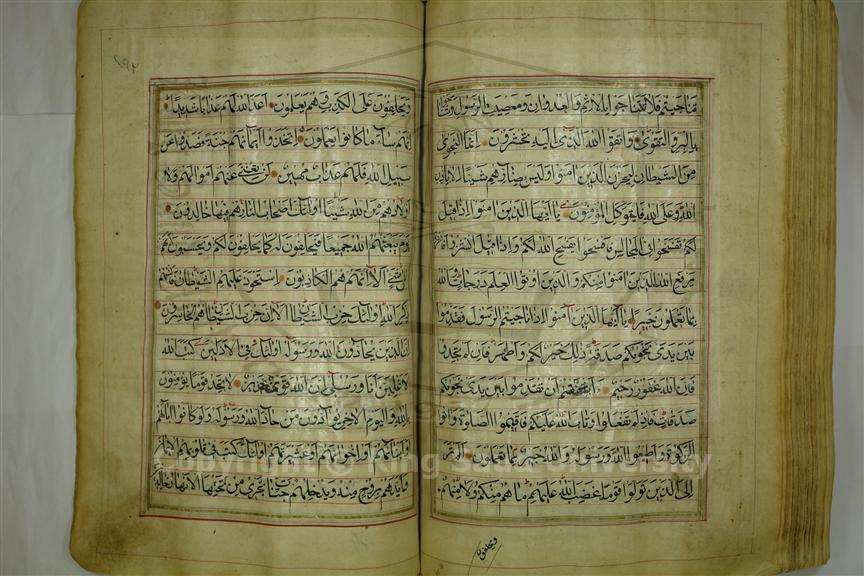 تناجيتم فلا تتناجوا بالاثم والعدوان ومعصيت الرسول وتناجوا
بالبر والتقوى واتقوا الله الذى اليه تحشرون انما النجوى
من الشيطان ليحزن الذين امنوا وليس بضارهم شيئا الا باذن
الله وعلى الله فليتوكل المؤمنون يا ايها الذين امنوا اذا قيل
لكم تفسحوا فى المجالس فافسحوا يفسح الله لكم واذا قيل انشزوا فانشزوا
يرفع الله الذين امنوا منكم والذين اوتوا العلم درجات والله
بما تعملون خبير يا ايها الذين امنوا اذا ناجيتم الرسول فقدموا
بين يدى نجويكم صدقة ذلك خير لكم واطهر فان لم تجدوا
فان الله غفور رحيم ءاشفقتم ان تقدموا بين يدى نجويكم
صدقات فاذ لم تفعلوا وتاب الله عليكم فاقيموا الصلوة واتوا
الزكوة واطيعوا الله ورسوله والله خبير بما تعملون الم تر
الى الذين تولوا قوما غضب الله عليهم ما هم منكم ولا منهم
ويحلفون
٢٩٢
ويحلفون على الكذب وهم يعلمون اعد الله لهم عذابا شديدا
انهم ساء ما كانوا يعملون اتخذوا ايمانهم جنة فصدوا عن
سبيل الله فلهم عذاب مهين لن تغنى عنهم اموالهم ولا
اولادهم من الله شيئا اولئك اصحاب النار هم فيها خالدون
يوم يبعثهم الله جميعا فيحلفون له كما يحلفون لكم ويحسبون انهم
على شئ الا انهم هم الكاذبون استحوذ عليهم الشيطان فانسهم
ذكر الله اولئك حزب الشيطان الا ان حزب الشيطان هم الخاسرون
ان الذين يحادون الله ورسوله اولئك فى الاذلين كتب الله
لاغلبن انا ورسلى ان الله قوى عزيز لا تجد قوما يؤمنون
بالله واليوم الاخر يوادون من حاد الله ورسوله ولو كانوا اباءهم
او ابناءهم او اخوانهم او عشيرتهم اولئك كتب فى قلوبهم الايمان
وايدهم بروح منه ويدخلهم جنات تجرى من تحتها الانهار خالدين